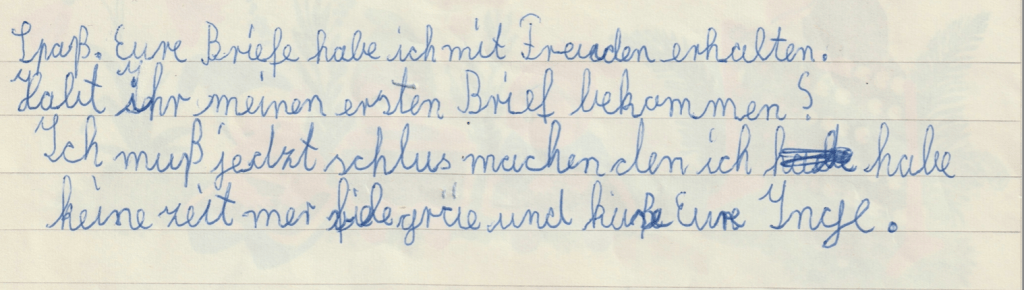 Spaß. Eure Briefe habe ich mit Freuden erhalten.
Habt ihr meinen ersten Brief bekommen?
Ich muß jedzt schlus machen den ich habe
keine zeit mer und Eure Inge.